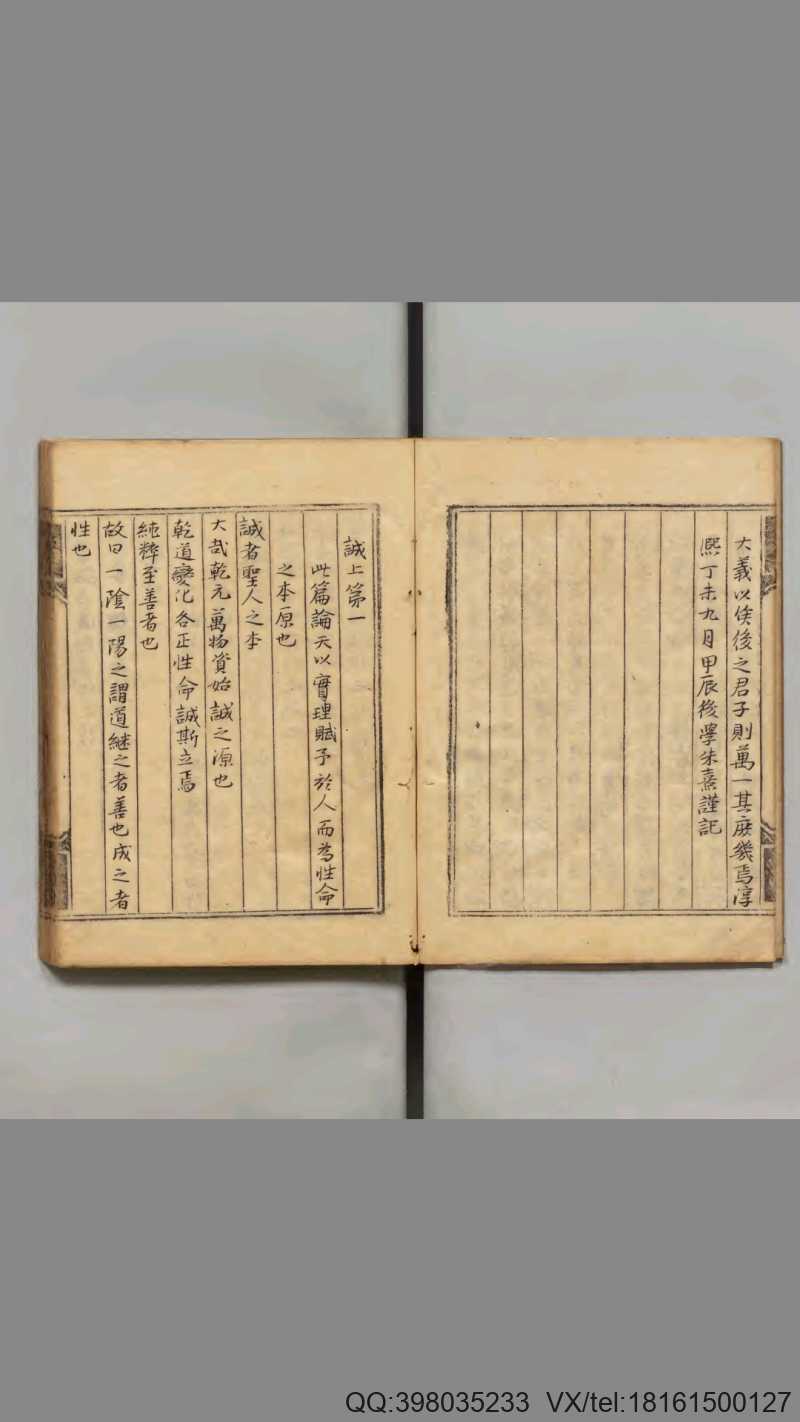 大義以俟後之君子則萬一其庶幾焉淳
熙丁未九月甲辰後學朱熹謹記
誠上第一
此篇論天以實理賦予於人而為性命
之本原也
誠者聖人之本
大哉乾元萬物資始誠之源也
乾道變化各正性命誠斯立焉
純粹至善者也
故曰一陰一陽之謂道継之者善也成之者
性也
QQ:398035233 VX/tel:18161500127